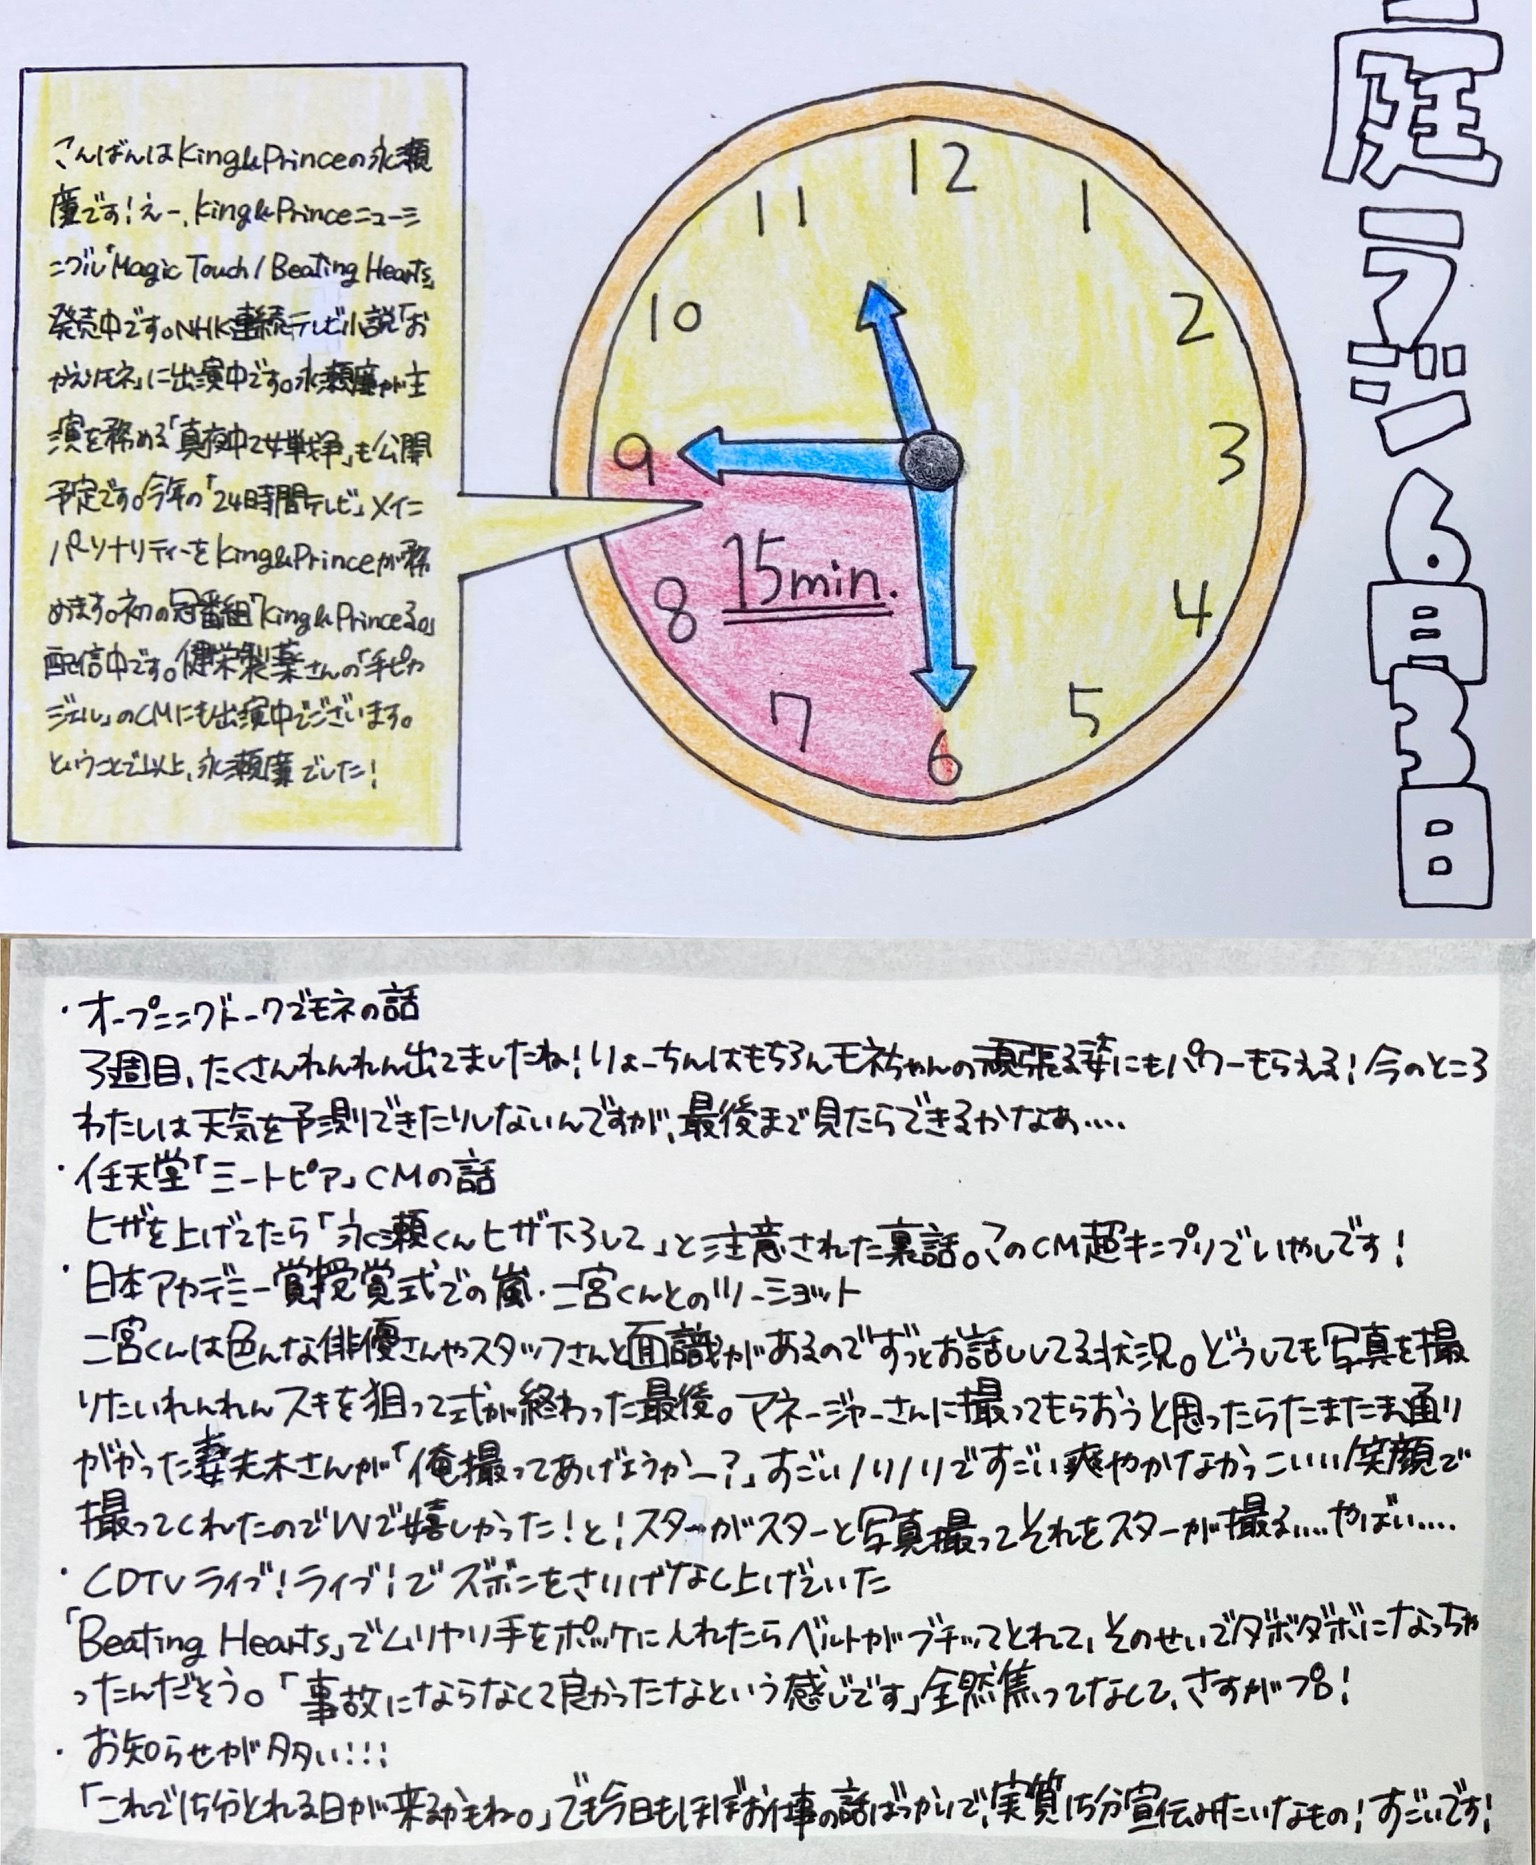 庭ラジ6月3日
こんばんはKing&Princeの永瀬
廉です!えー、King&Princeニューシ
ングル「Magic Touch/Beating Hearts」
発売中です。NHK連続テレビ小説「お
かえりモネ」に出演中です。永瀬廉が主
演を務める「真夜中乙女戦争」も公開
予定です。今年の「24時間テレビ」メイン
パーソナリティーをKing&Princeが務
めます。初の冠番組「King&Princeる。」
配信中です。健栄製薬さんの「手ピカ
ジェル」のCMにも出演中でございます。
ということで以上、永瀬廉でした!
12
1
2
3
4
5
6
7
8
9
10
11
15min.
・オープニングトークでモネの話
3週目、たくさんれんれん出てましたね!りょーちんはもちろんモネちゃんの頑張る姿にもパワーもらえる!今のところ
わたしは天気を予測できたりしないんですが、最後まで見たらできるかなあ....
・任天堂「ミートピア」CMの話
ヒザを上げてたら「永瀬くんヒザ下ろして」と注意された裏話。このCM超キンプリでいやしです!
・日本アカデミー賞授賞式での嵐・二宮くんとのツーショット
二宮くんは色んな俳優さんやスタッフさんと面識があるのでずっとお話ししてる状況。どうしても写真を撮
りたいれんれんスキを狙って式が終わった最後。マネージャーさんに撮ってもらおうと思ったらたまたま通り
がかった妻夫木さんが「俺撮ってあげようかー?」すごいノリノリですごい爽やかなかっこいい笑顔で
撮ってくれたのでWで嬉しかった!と!スターがスターと写真撮ってそれをスターが撮る....やばい....
・CDTVライブ!ライブ!でズボンをさりげなく上げていた
「Beating Hearts」でムリヤリ手をポッケに入れたらベルトがブチッてとれて、そのせいでダボダボになっちゃ
ったんだそう。「事故にならなくて良かったなという感じです」全然焦ってなくて、さすがプロ!
・お知らせが多い!!!
「これで15分とれる日が来るかもね。」でも今日もほぼお仕事の話ばっかいで、実質15分宣伝みたいなもの!すごいです!